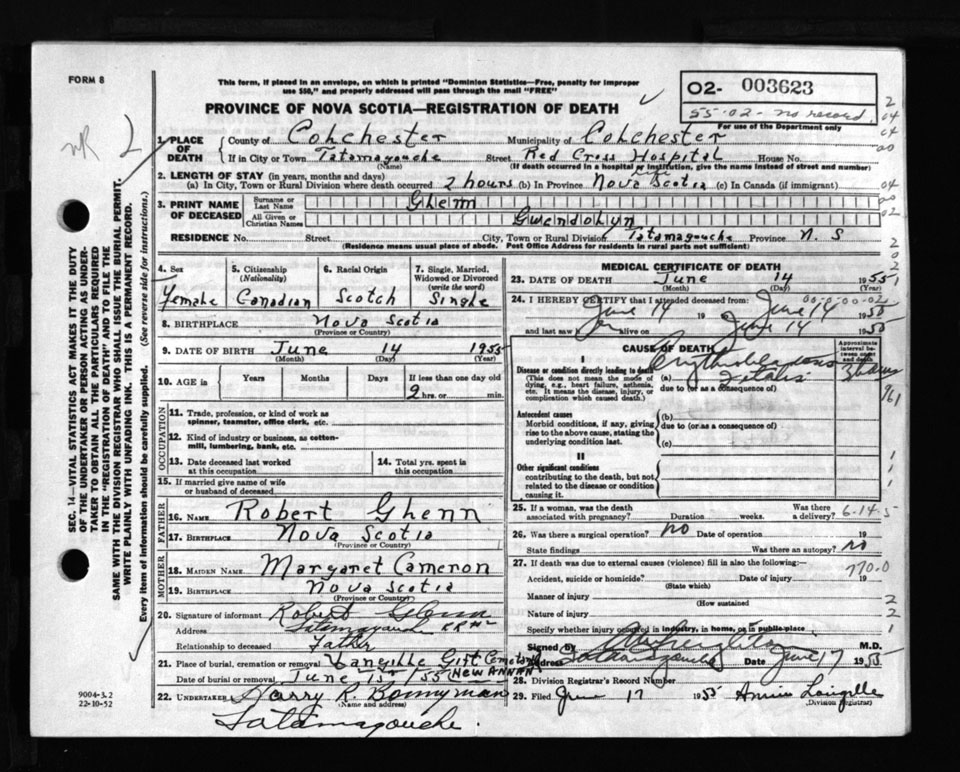 FORM 8
This form, if placed in an envelope, on which is printed "Dominion Statistics—Free, penalty for improper
use $50," and properly addressed will pass through the mail "FREE"
PROVINCE OF NOVA SCOTIA—REGISTRATION OF DEATH
02- 003623
55-02-no record.
For use of the Department only
SEC. 14—VITAL STATISTICS ACT MAKES IT THE DUTY
OF THE UNDERTAKER OR PERSON ACTING AS UNDER-
TAKER TO OBTAIN ALL THE PARTICULARS REQUIRED
IN THE "REGISTRATION OF DEATH" AND TO FILE THE
SAME WITH THE DIVISION REGISTRAR WHO SHALL ISSUE THE BURIAL PERMIT.
WRITE PLAINLY WITH UNFADING INK. THIS IS A PERMANENT RECORD.
Every item of information should be carefully supplied. (See reverse side for instructions.)
1. PLACE OF DEATH
County of Colchester Municipality of Colchester
If in City or Town Tatamagouche Street Red Cross Hospital House No.
(Name) (If death occurred in a hospital or institution, give the name instead of street and number)
2. LENGTH OF STAY (in years, months and days)
(a) In City, Town or Rural Division where death occurred 2 hours (b) In Province Nova Scotia (c) In Canada (if immigrant)
3. PRINT NAME OF DECEASED
Surname or Last Name Glenn
All Given or Christian Names Gwendolyn
RESIDENCE No. Street City, Town or Rural Division Tatamagouche Province N. S
(Residence means usual place of abode. Post Office Address for residents in rural parts not sufficient)
4. Sex Female
5. Citizenship (Nationality) Canadian
6. Racial Origin Scotch
7. Single, Married, Widowed or Divorced (write the word) Single
8. BIRTHPLACE Nova Scotia
(Province or Country)
9. DATE OF BIRTH June 14 1955
(Month) (Day) (Year)
10. AGE in Years Months Days If less than one day old
2 hrs. or min.
OCCUPATION
11. Trade, profession, or kind of work as
spinner, teamster, office clerk, etc.
12. Kind of industry or business, as cotton-
mill, lumbering, bank, etc.
13. Date deceased last worked
at this occupation
14. Total yrs. spent in
this occupation
15. If married give name of wife
or husband of deceased
FATHER
16. NAME Robert Glenn
17. BIRTHPLACE Nova Scotia
(Province or Country)
MOTHER
18. MAIDEN NAME Margaret Cameron
19. BIRTHPLACE Nova Scotia
(Province or Country)
20. Signature of informant Robert Glenn
Address Tatamagouche RR
Relationship to deceased Father
21. Place of burial, cremation or removal Gift Cemetery
Date of burial or removal June 15th/55 (NEW ANNAN
22. UNDERTAKER Harry R. Bonnyman
(Name and address)
Tatamagouche.
9004-3.2
22-10-52
MEDICAL CERTIFICATE OF DEATH
23. DATE OF DEATH June 14 1955
(Month) (Day)
24. I HEREBY CERTIFY that I attended deceased from:
June 14 June 14 1955
and last saw alive on June 14 1955
CAUSE OF DEATH
Approximate interval between onset and death
I
Disease or condition directly leading to death
(This does not mean the mode of
dying, e.g., heart failure, asthenia,
etc. It means the disease, injury, or
complication which caused death.)
(a) Erythroblastosis
due to (or as a consequence of)
Antecedent causes
Morbid conditions, if any, giving
rise to the above cause, stating the
underlying condition last.
(b)
due to (or as a consequence of)
(c)
II
Other significant conditions
contributing to the death, but not
related to the disease or condition
causing it.
25. If a woman, was the death Was there
associated with pregnancy? Duration weeks. a delivery?
6-14-5
26. Was there a surgical operation? no Date of operation 19
State findings Was there an autopsy? no
27. If death was due to external causes (violence) fill in also the following:—
770.0
Accident, suicide or homicide? Date of injury 19
(State which)
Manner of injury
(How sustained
Nature of injury
Specify whether injury occurred in industry, in home, or in public place
Signed by M.D.
Address Tatamagouche Date June 17 1955
28. Division Registrar's Record Number
29. Filed June 17 1955 Annie Langille
(Division Registrar)